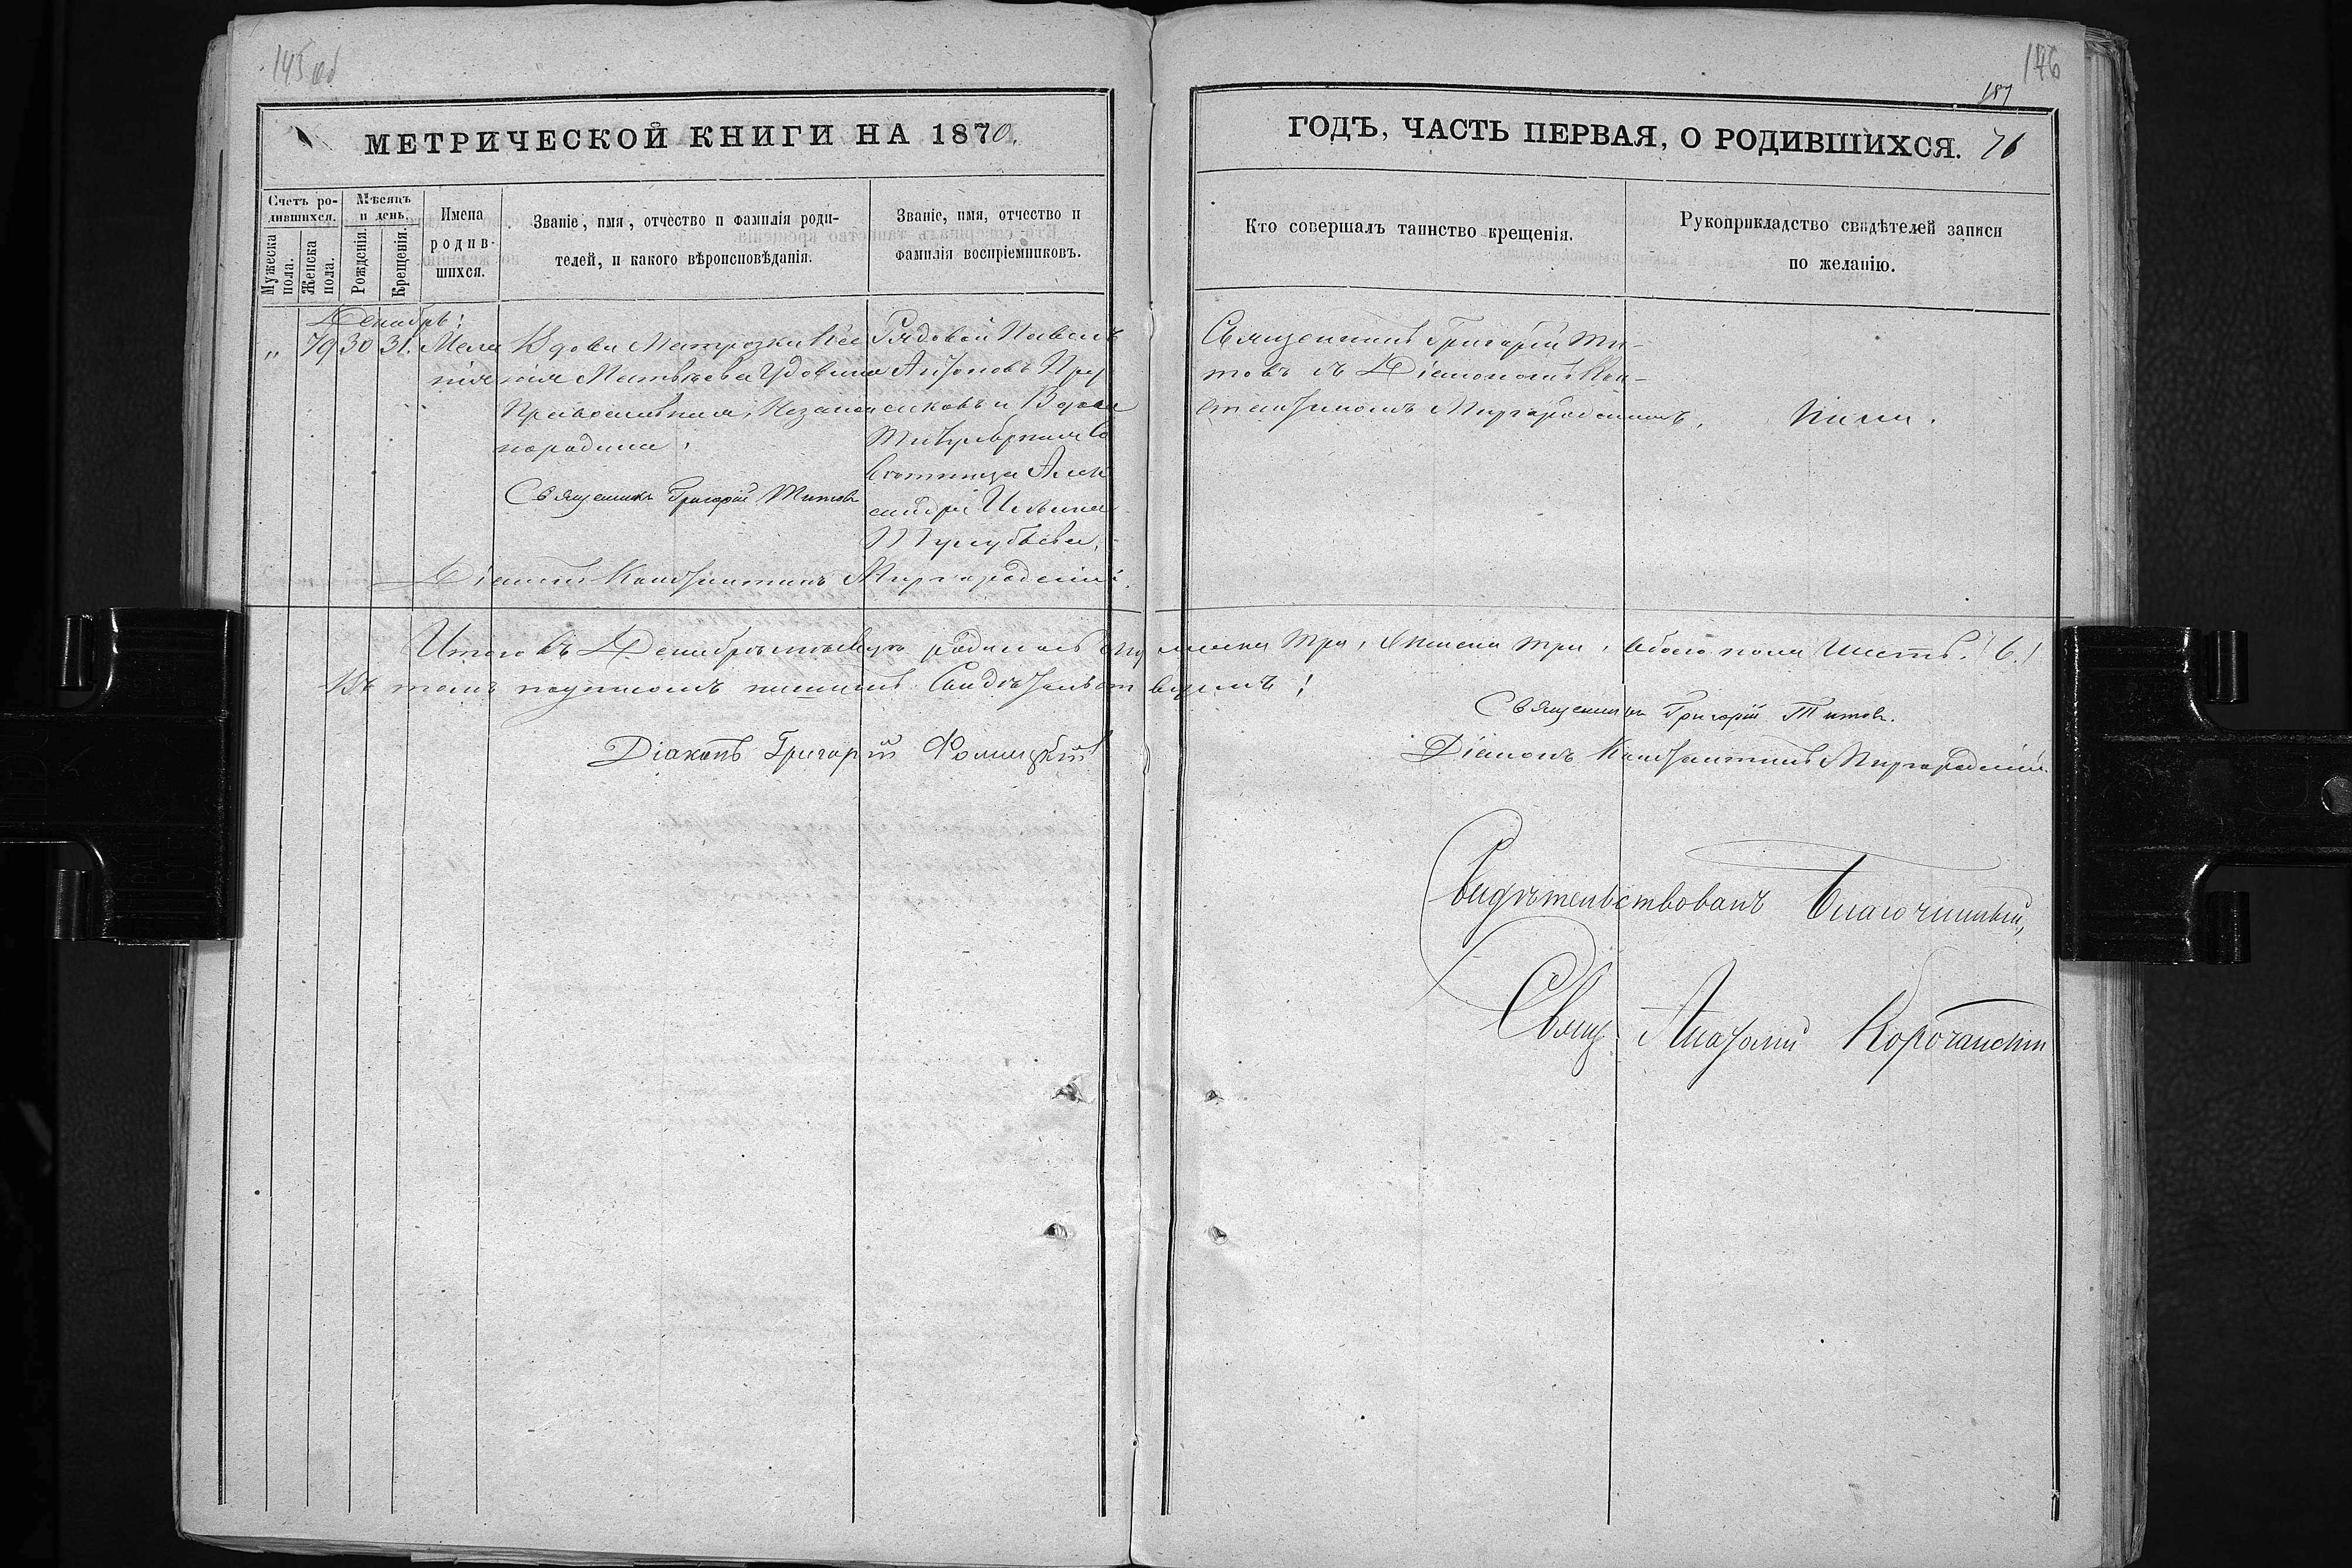 145 об
146
187
МЕТРИЧЕСКОЙ КНИГИ НА 1870.
ГОДЪ, ЧАСТЬ ПЕРВАЯ, О РОДИВШИХСЯ. 76
Счетъ ро-
дившихся.
Мѣсяцъ
и день.
Мужеска
пола.
Женска
пола.
Рожденія.
Крещенія.
Имена
родив-
шихся.
Званіе, имя, отчество и фамилія роди-
телей, и какого вѣроисповѣданія.
Званіе, имя, отчество и
фамилія воспріемниковъ.
Кто совершалъ таинство крещенія.
Рукоприкладство свидѣтелей записи
по желанію.
Декабрь:
" 79 30 31. Мела
нія
Вдова Матрозка Ксе
нія Матвѣева Удовина
Православная, Незаконно
рождена.
Священникъ Григорій Титовъ
Рядовой Павелъ
Антоновъ
и Вдова
Александра Ильина
Діаконъ Константинъ Миргородскій.
Священникъ Григорій Ти-
товъ съ Діакономъ Кон-
стантиномъ Миргородскимъ.
Итого въ Декабрѣ мѣсяцѣ родилось мужеска три, женска три, обоего пола шесть. (6.)
Въ томъ подписомъ нашимъ Свидѣтельствуемъ:
Священникъ Григорій Титовъ.
Діаконъ Григорій Фомицкій
Діаконъ Константинъ Миргородскій
Свидѣтельствовалъ Благочинный,
Свящ. Анатолій Корочанскій